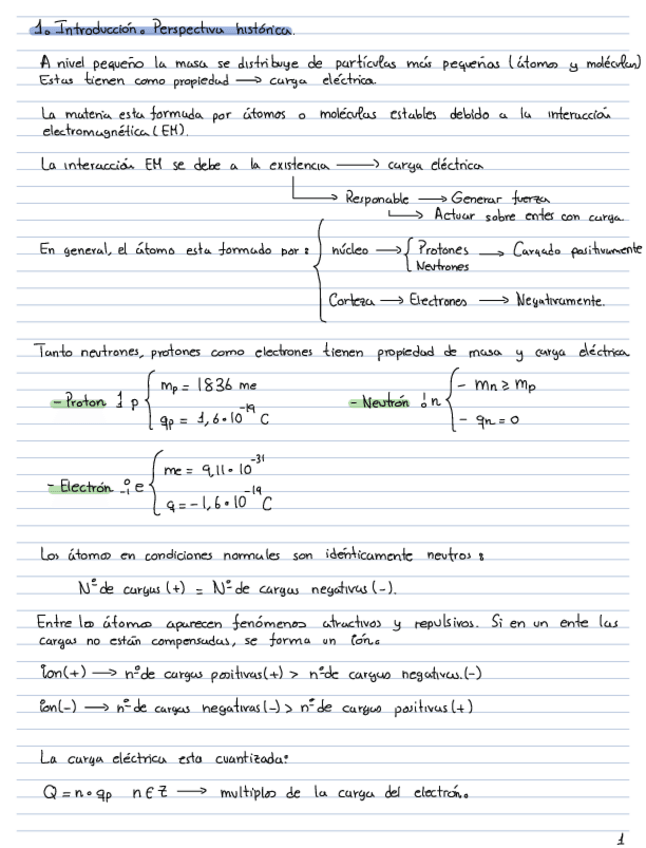 1. Introducción. Perspectiva histórica.
A nivel pequeño la masa se distribuye de partículas más pequeñas (átomos y moléculas)
Estas tienen como propiedad → carga eléctrica.
La materia esta formada por átomos o moléculas estables debido a la interacción
electromagnética (EM).
La interacción EM se debe a la existencia → carga eléctrica
Responable → Generar fuerza
→ Actuar sobre entes con carga
En general, el átomo esta formado por: { núcleo → { Protones → Cargado positivamente
Neutrones
Corteza → Electrones → Negativamente.
Tanto neutrones, protones como electrones tienen propiedad de masa y carga eléctrica
- Proton ¹₁p { mp = 1836 me
qp = 1,6·10⁻¹⁹ C
- Neutrón ¹₀n { - mn ≥ mp
- qn = 0
- Electrón ⁰₋₁e { me = 9,11·10⁻³¹
q = -1,6·10⁻¹⁹ C
Los átomos en condiciones normales son idénticamente neutros:
Nº de cargas (+) = Nº de cargas negativas (-).
Entre los átomos aparecen fenómenos atractivos y repulsivos. Si en un ente las
cargas no están compensadas, se forma un ión.
ion(+) → nº de cargas positivas(+) > nº de cargas negativas.(-)
ion(-) → nº de cargas negativas(-) > nº de cargas positivas(+)
La carga eléctrica esta cuantizada:
Q = n·qp n ∈ Z → multiplos de la carga del electrón.
1